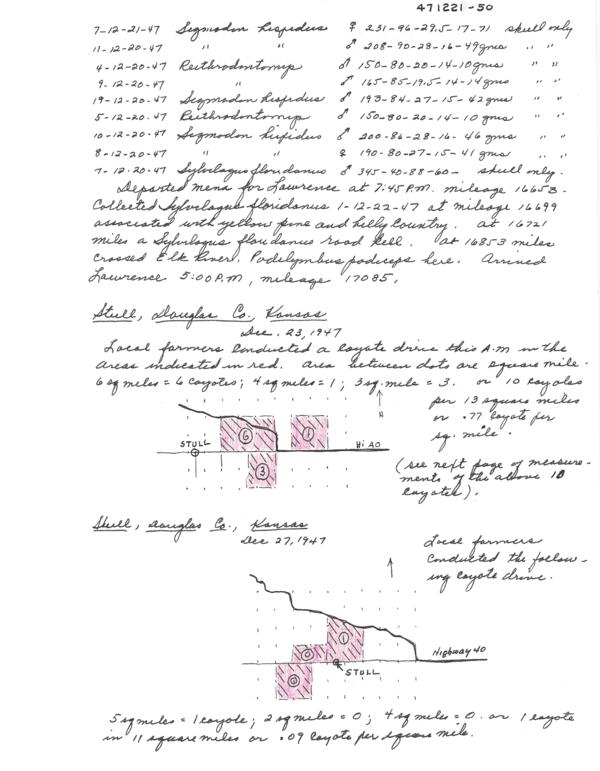 471221-50
7-12-21-47 Sigmodon hispidus ♀ 231-96-29.5-17-71 skull only
11-12-20-47 " " ♂ 208-90-28-16-49 gms " "
4-12-20-47 Reithrodontomys ♂ 150-80-20-14-10 gms " "
9-12-20-47 " ♂ 165-85-19.5-14-14 gms " "
19-12-20-47 Sigmodon hispidus ♂ 193-84-27-15-42 gms " "
5-12-20-47 Reithrodontomys ♂ 150-80-20-14-10 gms " "
10-12-20-47 Sigmodon hispidus ♂ 200-86-28-16-46 gms " "
8-12-20-47 " " ♀ 190-80-27-15-41 gms " "
7-12-20-47 Sylvilagus floridanus ♂ 345-40-88-60- skull only.
Departed Mena for Lawrence at 7:45 P.M. mileage 16653.
Collected Sylvilagus floridanus 1-12-22-47 at mileage 16699
associated with yellow pine and hilly country. at 16721
miles a Sylvilagus floridanus road kill. at 16853 miles
crossed Elk River, Podilymbus podiceps here. Arrived
Lawrence 5:00 P.M, mileage 17085.
Stull, Douglas Co., Kansas
Dec. 23, 1947
Local farmers conducted a coyote drive this A.M in the
areas indicated in red. area between dots are square mile.
6 sq miles = 6 coyotes; 4 sq miles = 1; 3 sq. mile = 3. or 10 coyotes
per 13 square miles
or .77 coyote per
sq. mile.
N
STULL
6
1
Hi 40
3
(see next page of measure-
ments of the above 10
coyotes).
Stull, Douglas Co., Kansas
Dec 27, 1947
Local farmers
conducted the follow-
ing coyote drive.
1
0
Highway 40
STULL
0
5 sq miles = 1 coyote; 2 sq miles = 0; 4 sq miles = 0. or 1 coyote
in 11 square miles or .09 coyote per square mile.